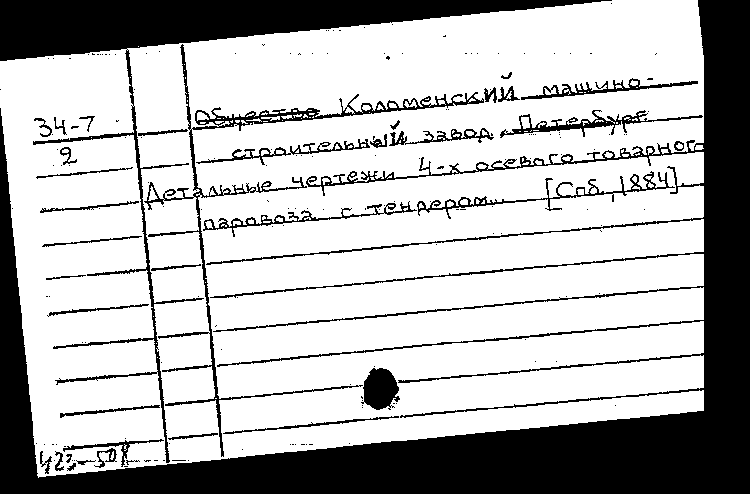 34-7
2
Общество Коломенский машино-
строительный завод, Петербург.
Детальные чертежи 4-х осевого товарного
паровоза с тендером... [Спб., 1884].
423-508